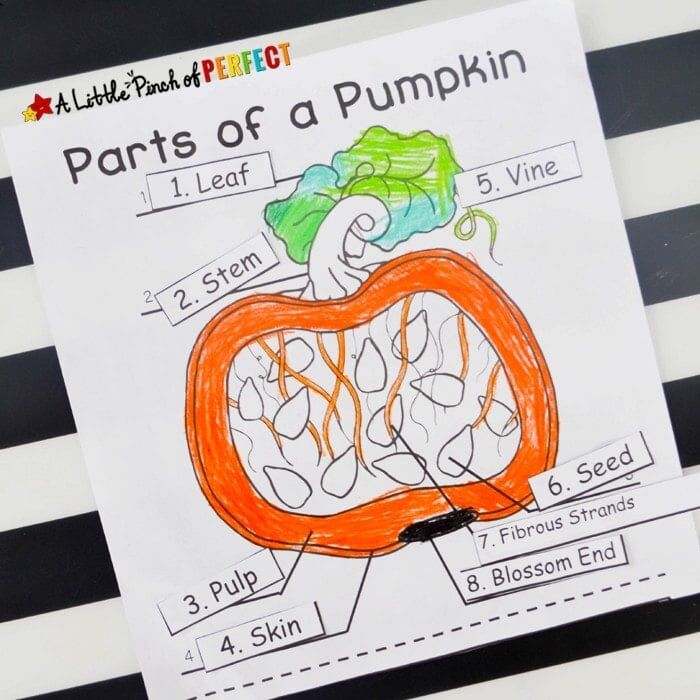 A Little Pinch of PERFECT
Parts of a Pumpkin
1
1. Leaf
5. Vine
2
2. Stem
6. Seed
7. Fibrous Strands
3. Pulp
8. Blossom End
4
4. Skin